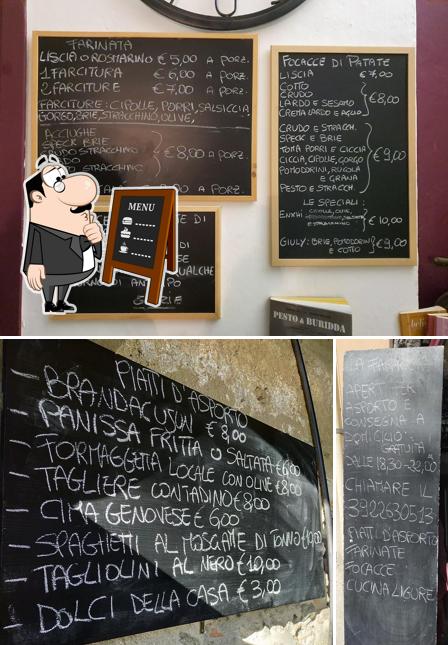 FARINATA
LISCIA O ROSMARINO € 5,00 A PORZ.
1 FARCITURA € 6,00 A PORZ.
2 FARCITURE € 7,00 A PORZ.
FARCITURE: CIPOLLE, PORRI, SALSICCIA
GORGO, BRIE, STRACCHINO, OLIVE,
ACCIUGHE
SPECK BRIE
CRUDO STRACCHINO
€ 8,00 A PORZ.
STRACCHINO
A PORZ.
MENU
FOCACCE DI PATATE
LISCIA € 7,00
COTTO
CRUDO
LARDO E SESAMO
CREMA LARDO E AGLIO
€ 8,00
CRUDO E STRACCH.
SPECK E BRIE
TOMA PORRI E CICCIA
CICCIA, CIPOLLE, GORGO
POMODORINI, RUCOLA
E GRANA
PESTO E STRACCH.
€ 9,00
LE SPECIALI:
€ 10,00
GIULY: BRIE, POMODORINI
E COTTO
€ 9,00
PESTO & BURIDDA
PIATTI D'ASPORTO
- BRANDACUJUN € 8,00
- PANISSA FRITTA O SALTATA € 6,00
- FORMAGGETTA LOCALE CON OLIVE € 8,00
- TAGLIERE CONTADINO € 8,00
- CIMA GENOVESE € 6,00
- SPAGHETTI AL MOSCIAME DI TONNO € 10,00
- TAGLIOLINI AL NERO € 10,00
- DOLCI DELLA CASA € 3,00
ASPORTO E
CONSEGNA A
DOMICILIO
GRATUITA
DALLE 18,30-22,00
CHIAMARE IL
3922630513
PIATTI D'ASPORTO
FARINATE
FOCACCE
CUCINA LIGURE